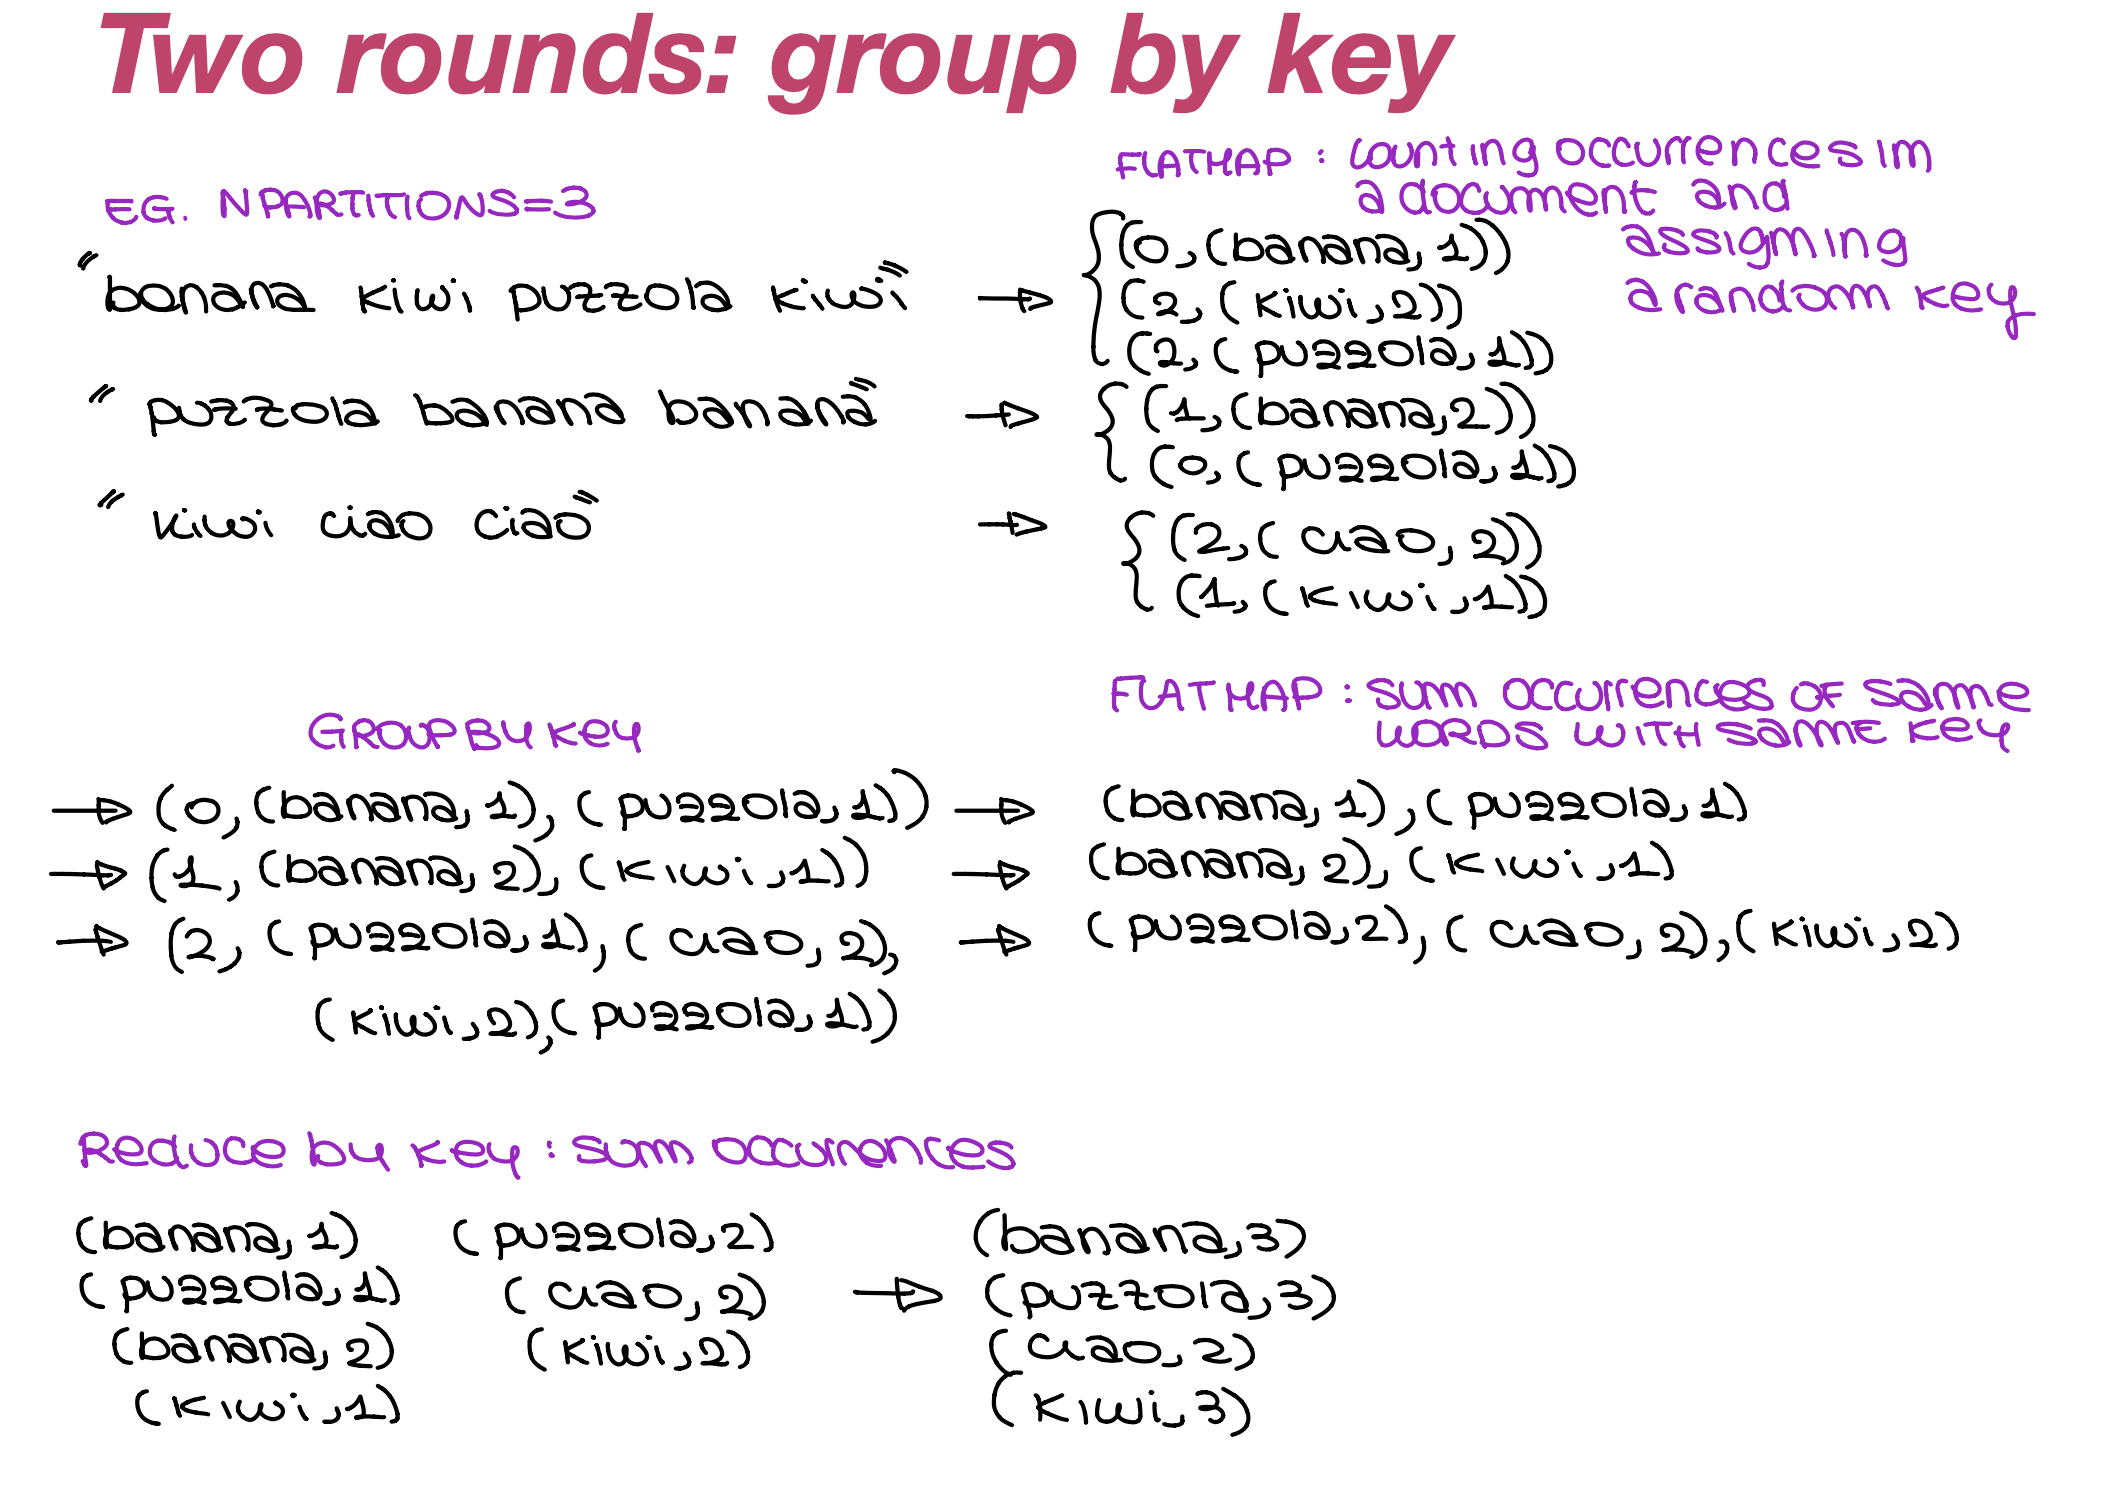 Two rounds: group by key
FLATMAP : counting occurrences in
a document and
assigning
a random key
EG. NPARTITIONS=3
"banana kiwi puzzola kiwi" → { (0,(banana,1))
(2,(kiwi,2))
(2,(puzzola,1))
"puzzola banana banana" → { (1,(banana,2))
(0,(puzzola,1))
"kiwi ciao ciao" → { (2,(ciao,2))
(1,(kiwi,1))
GROUP BY KEY
FLATMAP : sum occurrences of same
words with same key
→ (0,(banana,1),(puzzola,1)) → (banana,1),(puzzola,1)
→ (1,(banana,2),(kiwi,1)) → (banana,2),(kiwi,1)
→ (2,(puzzola,1),(ciao,2), → (puzzola,2),(ciao,2),(kiwi,2)
(kiwi,2),(puzzola,1))
Reduce by key : sum occurrences
(banana,1) (puzzola,2) (banana,3)
(puzzola,1) (ciao,2) → (puzzola,3)
(banana,2) (kiwi,2) (ciao,2)
(kiwi,1) (kiwi,3)